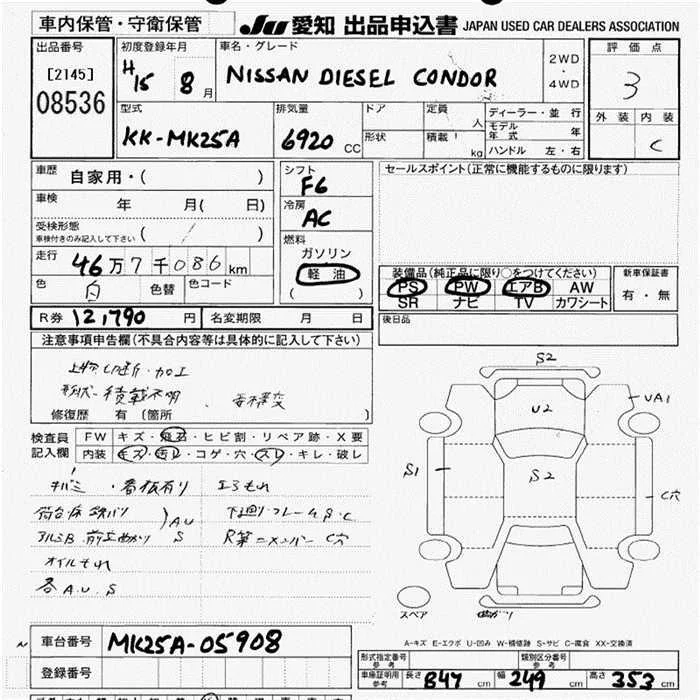 車内保管・守衛保管
JU 愛知 出品申込書 JAPAN USED CAR DEALERS ASSOCIATION
出品番号
[2145]
08536
初度登録年月
H15 8月
車名・グレード
NISSAN DIESEL CONDOR
2WD
・
4WD
評価点
3
外装 内装
C
型式
KK-MK25A
排気量
6920 CC
ドア
定員
人
形状
積載
kg
ディーラー・並行
モデル年式 年
ハンドル 左・右
車歴
自家用・( )
車検
年 月( 日)
受検形態
車検付きのみ記入して下さい ( )
走行
46万7千086km
色
白
色替
色コード
シフト
F6
冷房
AC
燃料
ガソリン
軽油
( )
セールスポイント(正常に機能するものに限ります)
装備品(純正品に限り○をつけてください)
PS PW エアB AW
SR ナビ TV カワシート
新車保証書
有・無
R券 121,790 円
名変期限 月 日
後日品
注意事項申告欄(不具合内容等は具体的に記入して下さい)
上物切断・加工
形状・積載不明
要構変
修復歴 有(箇所 )
検査員
記入欄
FW キズ・飛石・ヒビ割・リペア跡・X要
内装 キズ・汚レ・コゲ・穴・スレ・キレ・破レ
・看板有り
エアもれ
荷台床鉄バリ
AU
S
下回り・フレームS.C
アルミB 前立曲がり
R第二メンバー C穴
オイルもれ
各A.U.S
S2
U2
UA1
S1
S2
C穴
スペア
曲がり
A-キズ E-エクボ U-凹み W-補修跡 S-サビ C-腐食 XX-交換済
車台番号
MK25A-05908
登録番号
形式指定番号
参考
類別区分番号
参考
車庫証明用
参考
長さ 847 cm 幅 249 cm 高さ 353 cm